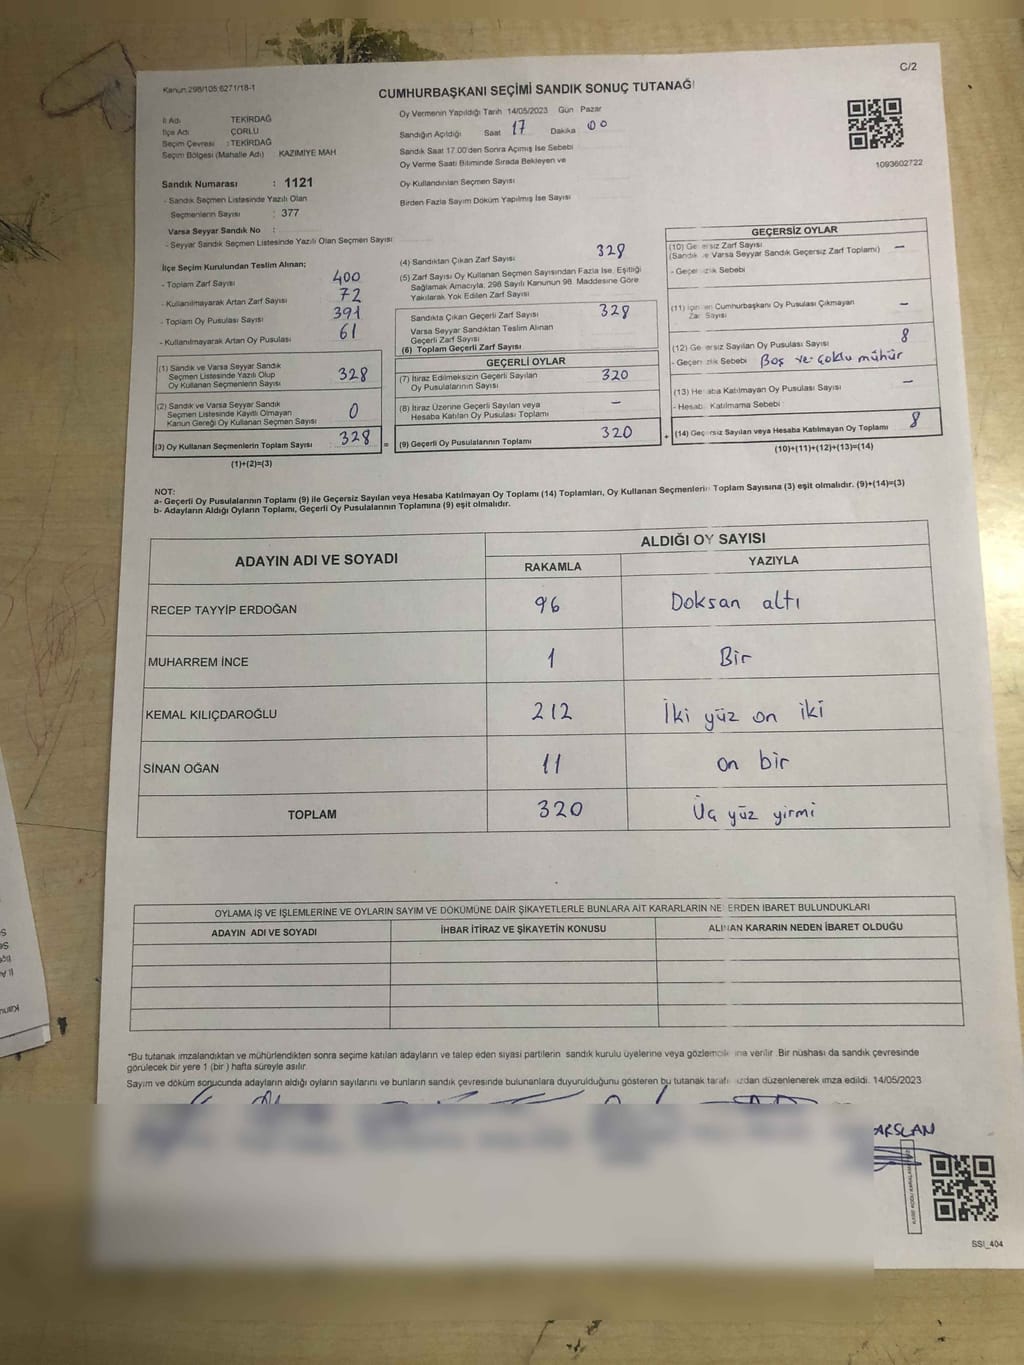 C/2
Kanun 298/105 6271/18-1
CUMHURBAŞKANI SEÇİMİ SANDIK SONUÇ TUTANAĞI
İl Adı TEKİRDAĞ
İlçe Adı ÇORLU
Seçim Çevresi : TEKİRDAĞ
Seçim Bölgesi (Mahalle Adı) KAZIMİYE MAH
Sandık Numarası : 1121
- Sandık Seçmen Listesinde Yazılı Olan
Seçmenlerin Sayısı : 377
Varsa Seyyar Sandık No :
- Seyyar Sandık Seçmen Listesinde Yazılı Olan Seçmen Sayısı
Oy Vermenin Yapıldığı Tarih 14/05/2023 Gün Pazar
Sandığın Açıldığı Saat 17 Dakika 00
Sandık Saat 17.00'den Sonra Açımış İse Sebebi
Oy Verme Saati Bitiminde Sırada Bekleyen ve
Oy Kullandırılan Seçmen Sayısı
Birden Fazla Sayım Döküm Yapılmış İse Sayısı
1093602722
İlçe Seçim Kurulundan Teslim Alınan;
- Toplam Zarf Sayısı 400
- Kullanılmayarak Artan Zarf Sayısı 72
- Toplam Oy Pusulası Sayısı 391
- Kullanılmayarak Artan Oy Pusulası 61
(1) Sandık ve Varsa Seyyar Sandık
Seçmen Listesinde Yazılı Olup
Oy Kullanan Seçmenlerin Sayısı 328
(2) Sandık ve Varsa Seyyar Sandık
Seçmen Listesinde Kayıtlı Olmayan
Kanun Gereği Oy Kullanan Seçmen Sayısı 0
(3) Oy Kullanan Seçmenlerin Toplam Sayısı 328 =
(1)+(2)=(3)
(4) Sandıktan Çıkan Zarf Sayısı 328
(5) Zarf Sayısı Oy Kullanan Seçmen Sayısından Fazla İse, Eşitliği
Sağlamak Amacıyla, 298 Sayılı Kanunun 98. Maddesine Göre
Yakılarak Yok Edilen Zarf Sayısı
Sandıkta Çıkan Geçerli Zarf Sayısı 328
Varsa Seyyar Sandıktan Teslim Alınan
Geçerli Zarf Sayısı
(6) Toplam Geçerli Zarf Sayısı
GEÇERLİ OYLAR
(7) İtiraz Edilmeksizin Geçerli Sayılan
Oy Pusulalarının Sayısı 320
(8) İtiraz Üzerine Geçerli Sayılan veya
Hesaba Katılan Oy Pusulası Toplamı –
(9) Geçerli Oy Pusulalarının Toplamı 320 +
GEÇERSİZ OYLAR
(10) Ge ersiz Zarf Sayısı
(Sandık ve Varsa Seyyar Sandık Geçersiz Zarf Toplamı) –
- Geçer izlik Sebebi
(11) İçin en Cumhurbaşkanı Oy Pusulası Çıkmayan
Zar Sayısı –
(12) Ge ersiz Sayılan Oy Pusulası Sayısı 8
- Geçer zlik Sebebi Boş ve çoklu mühür
(13) He aba Katılmayan Oy Pusulası Sayısı –
- Hesab Katılmama Sebebi
(14) Geç rsiz Sayılan veya Hesaba Katılmayan Oy Toplamı 8
(10)+(11)+(12)+(13)=(14)
NOT:
a- Geçerli Oy Pusulalarının Toplamı (9) ile Geçersiz Sayılan veya Hesaba Katılmayan Oy Toplamı (14) Toplamları, Oy Kullanan Seçmenlerin Toplam Sayısına (3) eşit olmalıdır. (9)+(14)=(3)
b- Adayların Aldığı Oyların Toplamı, Geçerli Oy Pusulalarının Toplamına (9) eşit olmalıdır.
ADAYIN ADI VE SOYADI ALDIĞI OY SAYISI
RAKAMLA YAZIYLA
RECEP TAYYİP ERDOĞAN 96 Doksan altı
MUHARREM İNCE 1 Bir
KEMAL KILIÇDAROĞLU 212 İki yüz on iki
SİNAN OĞAN 11 on bir
TOPLAM 320 Üç yüz yirmi
OYLAMA İŞ VE İŞLEMLERİNE VE OYLARIN SAYIM VE DÖKÜMÜNE DAİR ŞİKAYETLERLE BUNLARA AİT KARARLARIN NE ERDEN İBARET BULUNDUKLARI
ADAYIN ADI VE SOYADI İHBAR İTİRAZ VE ŞİKAYETİN KONUSU ALINAN KARARIN NEDEN İBARET OLDUĞU
*Bu tutanak imzalandıktan ve mühürlendikten sonra seçime katılan adayların ve talep eden siyasi partilerin sandık kurulu üyelerine veya gözlemcile ine verilir. Bir nüshası da sandık çevresinde
görülecek bir yere 1 (bir ) hafta süreyle asılır.
Sayım ve döküm sonucunda adayların aldığı oyların sayılarını ve bunların sandık çevresinde bulunanlara duyurulduğunu gösteren bu tutanak tarafı ızdan düzenlenerek imza edildi. 14/05/2023
ARSLAN
SSI_404